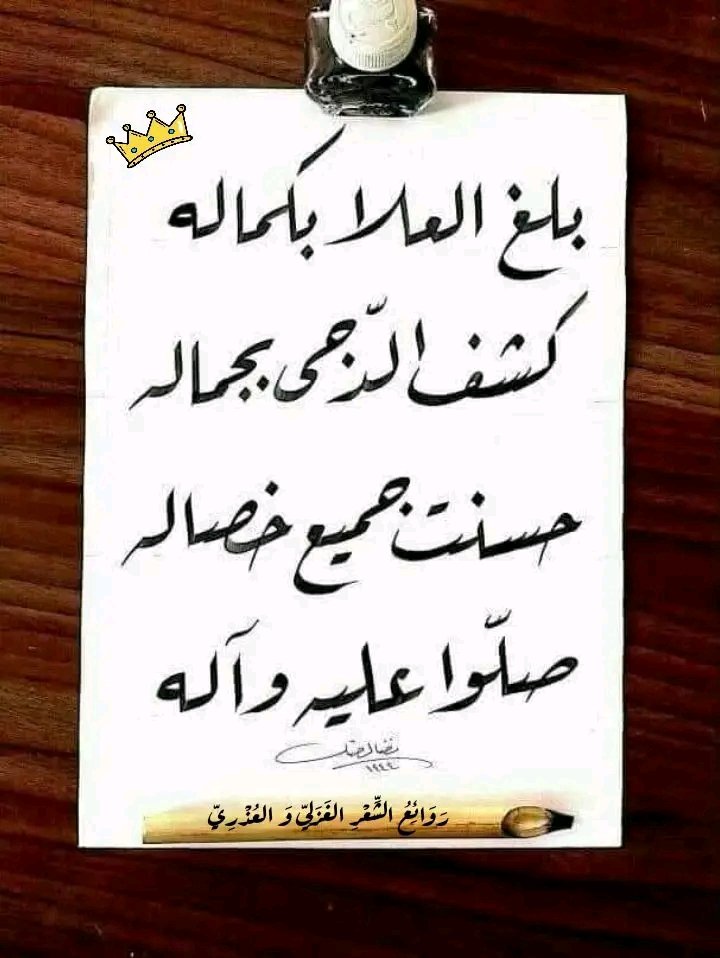 بلغ العلا بكماله
كشف الدّجى بجماله
حسنت جميع خصاله
صلّوا عليه وآله
رَوَائِعُ الشِّعْرِ الغَزَلِيّ وَ العُذْرِيّ